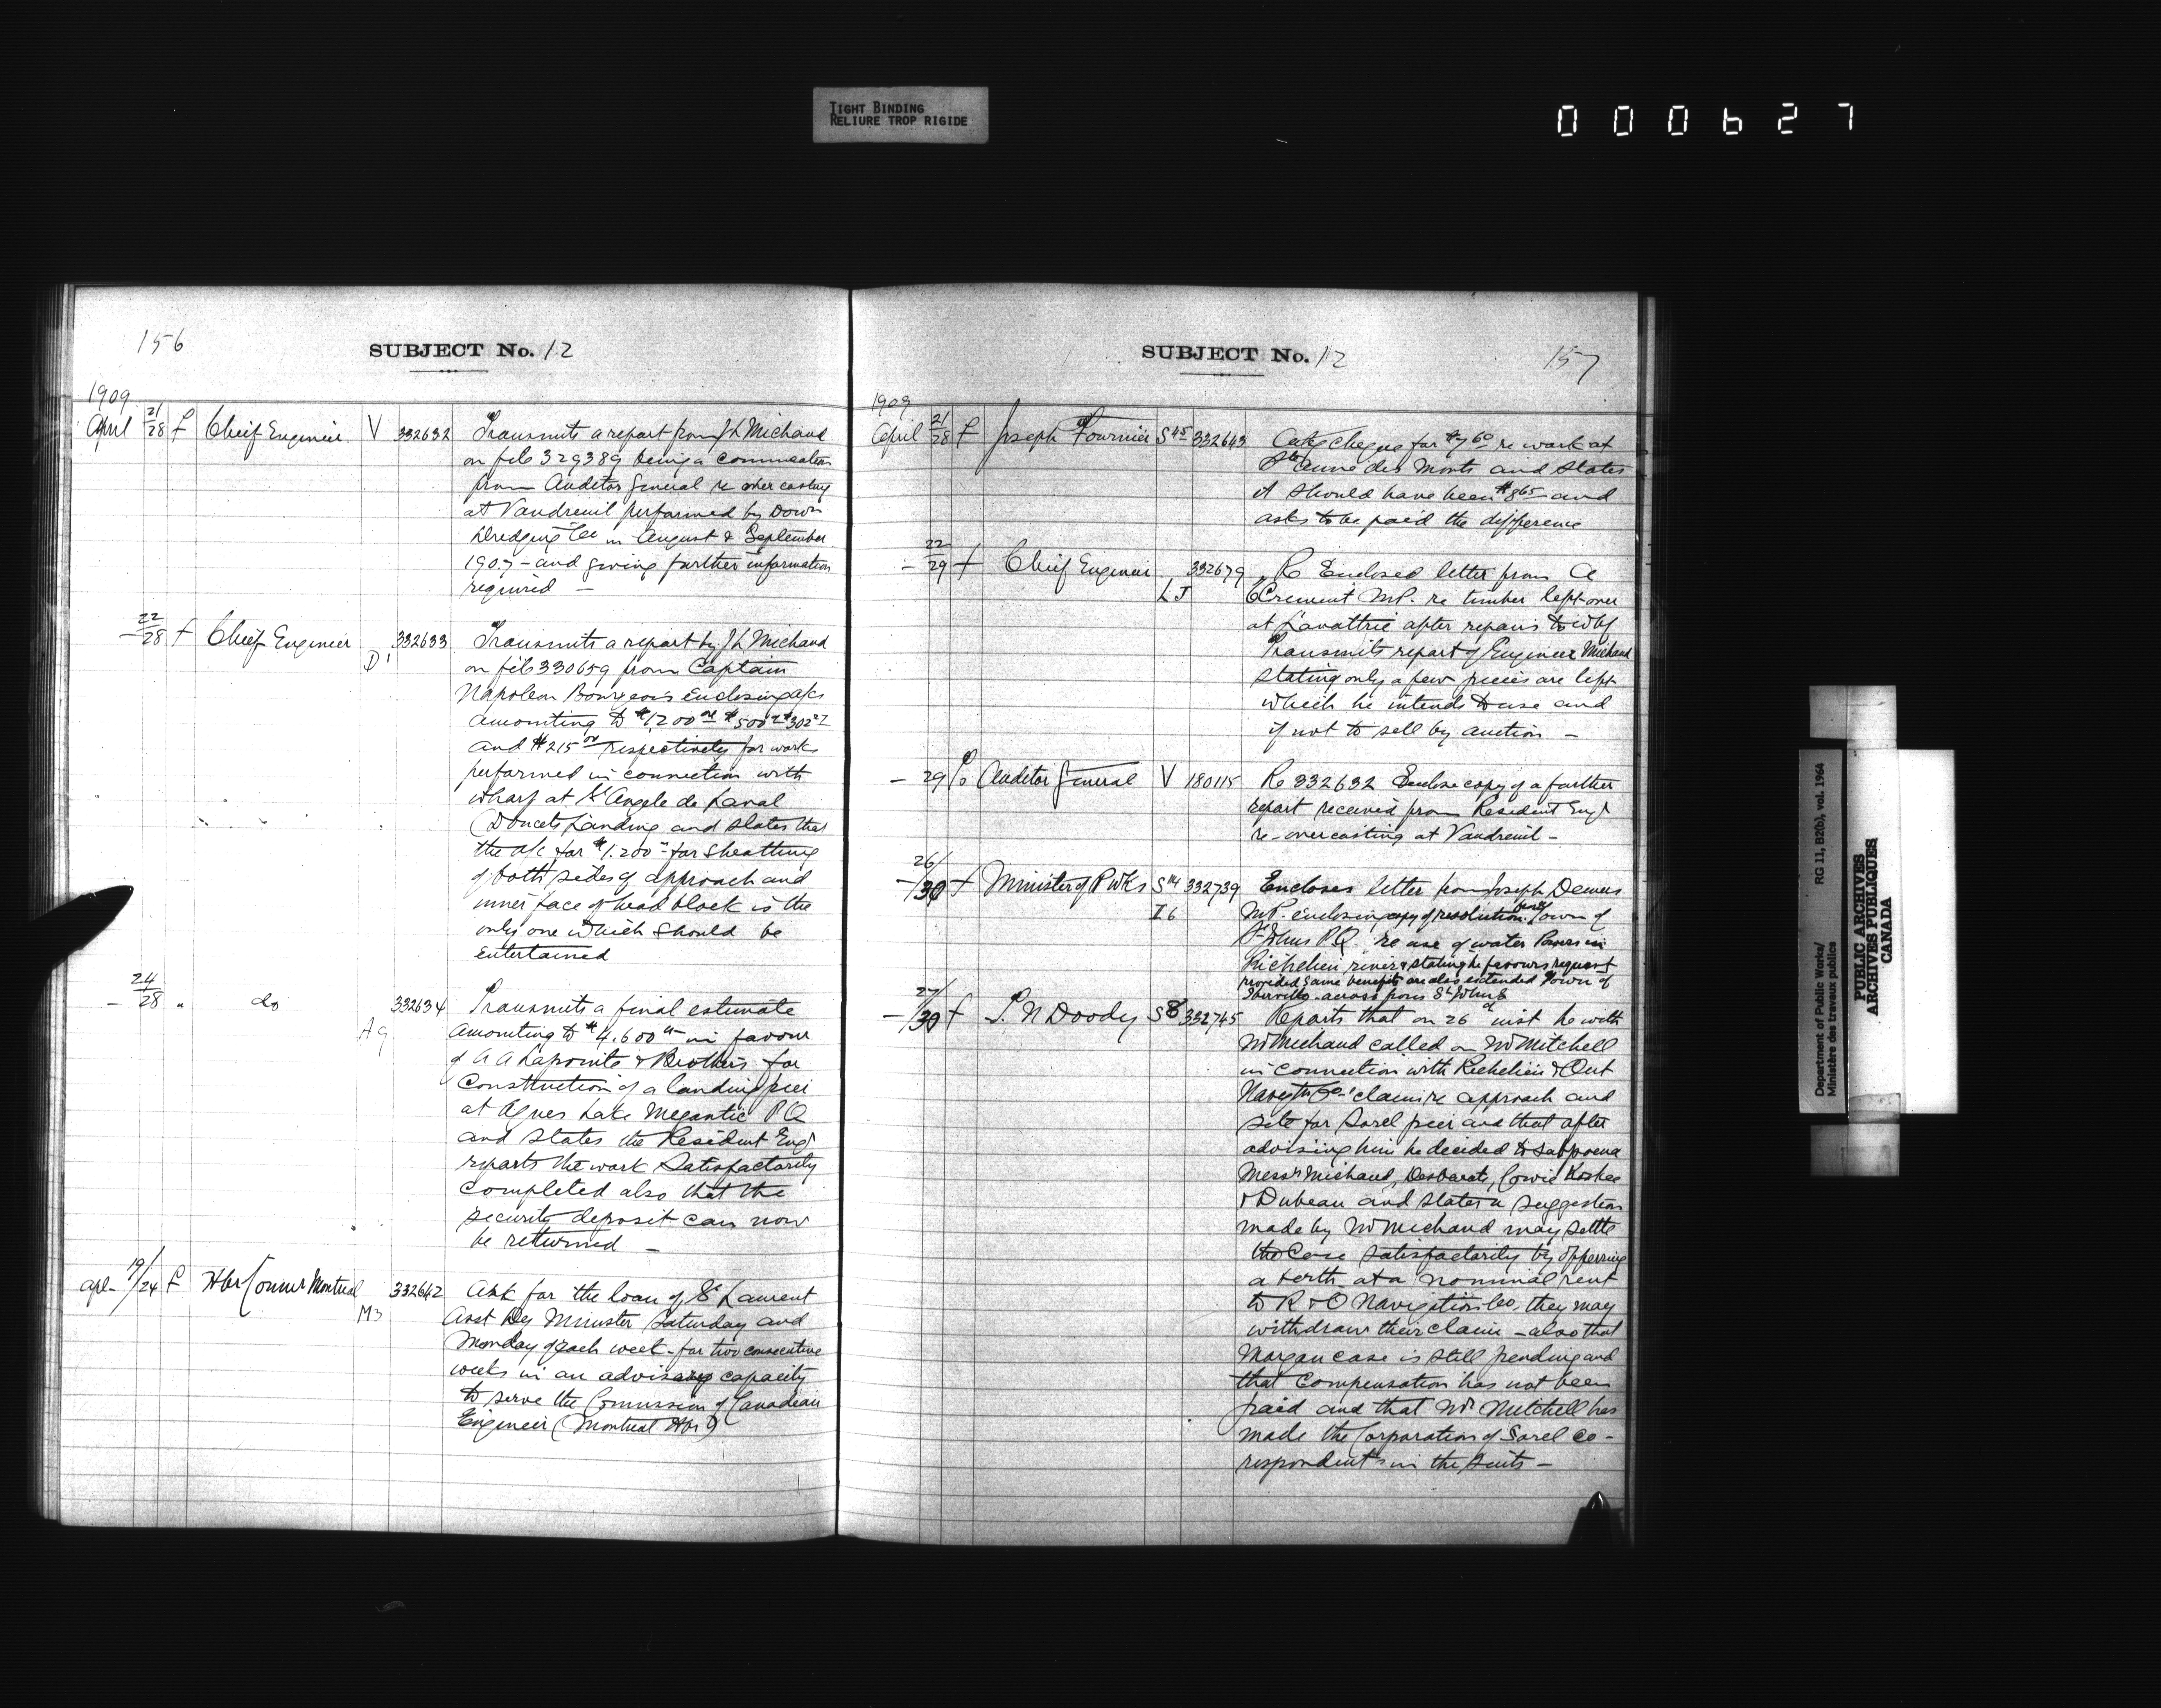 TIGHT BINDING
RELIURE TROP RIGIDE
000627
156
SUBJECT No. 12
1909
April 21/28 f Chief Engineer V 332632 Transmits a report from J L Michaud
on file 329389 being a
from Auditor General re over casting
at Vaudreuil performed by
Dredging Co in August & September
1907 - and giving further information
required -
- 22/28 f Chief Engineer D1 332633 Transmits a report by J L Michaud
on file 330659 from Captain
Napoleon Bourgeois enclosing a/cs
amounting to $1200 00 $500 $302
and $215 00 respectively for works
performed in connection with
wharf at St Angele de Laval
(Doucets Landing and states that
the a/c for $1.200 - for sheathing
of both sides of approach and
inner face of head block is the
only one which should be
entertained
- 24/28 " do A9 332634 Transmits a final estimate
amounting to $4.600 in favour
of A A Lapointe & Brothers for
Construction of a landing pier
at Agnes Lake Megantic P Q
and states the Resident Engr
reports the work satisfactorily
completed also that the
security deposit can now
be returned -
apl - 19/24 f Hbr Comrs Montreal M3 332642 Ask for the loan of St Laurent
Asst Dy Minister Saturday and
Monday of each week - for two consecutive
weeks in an advisary capacity
to serve the Commission of Canadian
Engineer (Montreal Hbr)
SUBJECT No. 12
157
1909
April 21/28 f Joseph Fournier S45 332643 cheque for $7 60 re work at
Ste Anne des Monts and states
it should have been $8 65 - and
asks to be paid the difference
- 22/29 f Chief Engineer LJ 332679 Re Enclosed letter from A
MP. re timber left over
at Lavaltrie after repairs to whf
Transmits report of Engineer Michaud
stating only a few pieces are left
which he intends to use and
if not to sell by auction -
- 29 Auditor General V 180115 Re 332632 Enclose copy of a further
report received from Resident Engr
re - overcasting at Vaudreuil -
- 26/30 f Minister of P Wks S14 I6 332739 Encloses letter from Joseph Demers
MP. enclosing copy of resolution Town of
St Johns P.Q. re use of water Powers in
Richelieu river & stating he favours request
provided same benefits are also extended Town of
Iberville across from St Johns
- 27/30 f N Doody S8 332745 Reports that on 26th inst he with
Mr Michaud called on Mr Mitchell
in connection with Richelieu & Ont
claim re approach and
site for Sorel pier and that after
advising him he decided to subpoena
Messrs Michaud, Desbarats, Cowie
& Dubeau and states a suggestion
made by Mr Michaud may settle
the Case satisfactorily by offering
a berth at a nominal rent
to R & O Navigation Co. they may
withdraw their claim - also that
Morgan case is still pending and
that Compensation has not been
paid and that Mr Mitchell has
made the Corporation of Sorel co -
respondents in the suits -
Department of Public Works/
Ministère des travaux publics
RG 11, B2(b), vol. 1964
PUBLIC ARCHIVES
ARCHIVES PUBLIQUES
CANADA